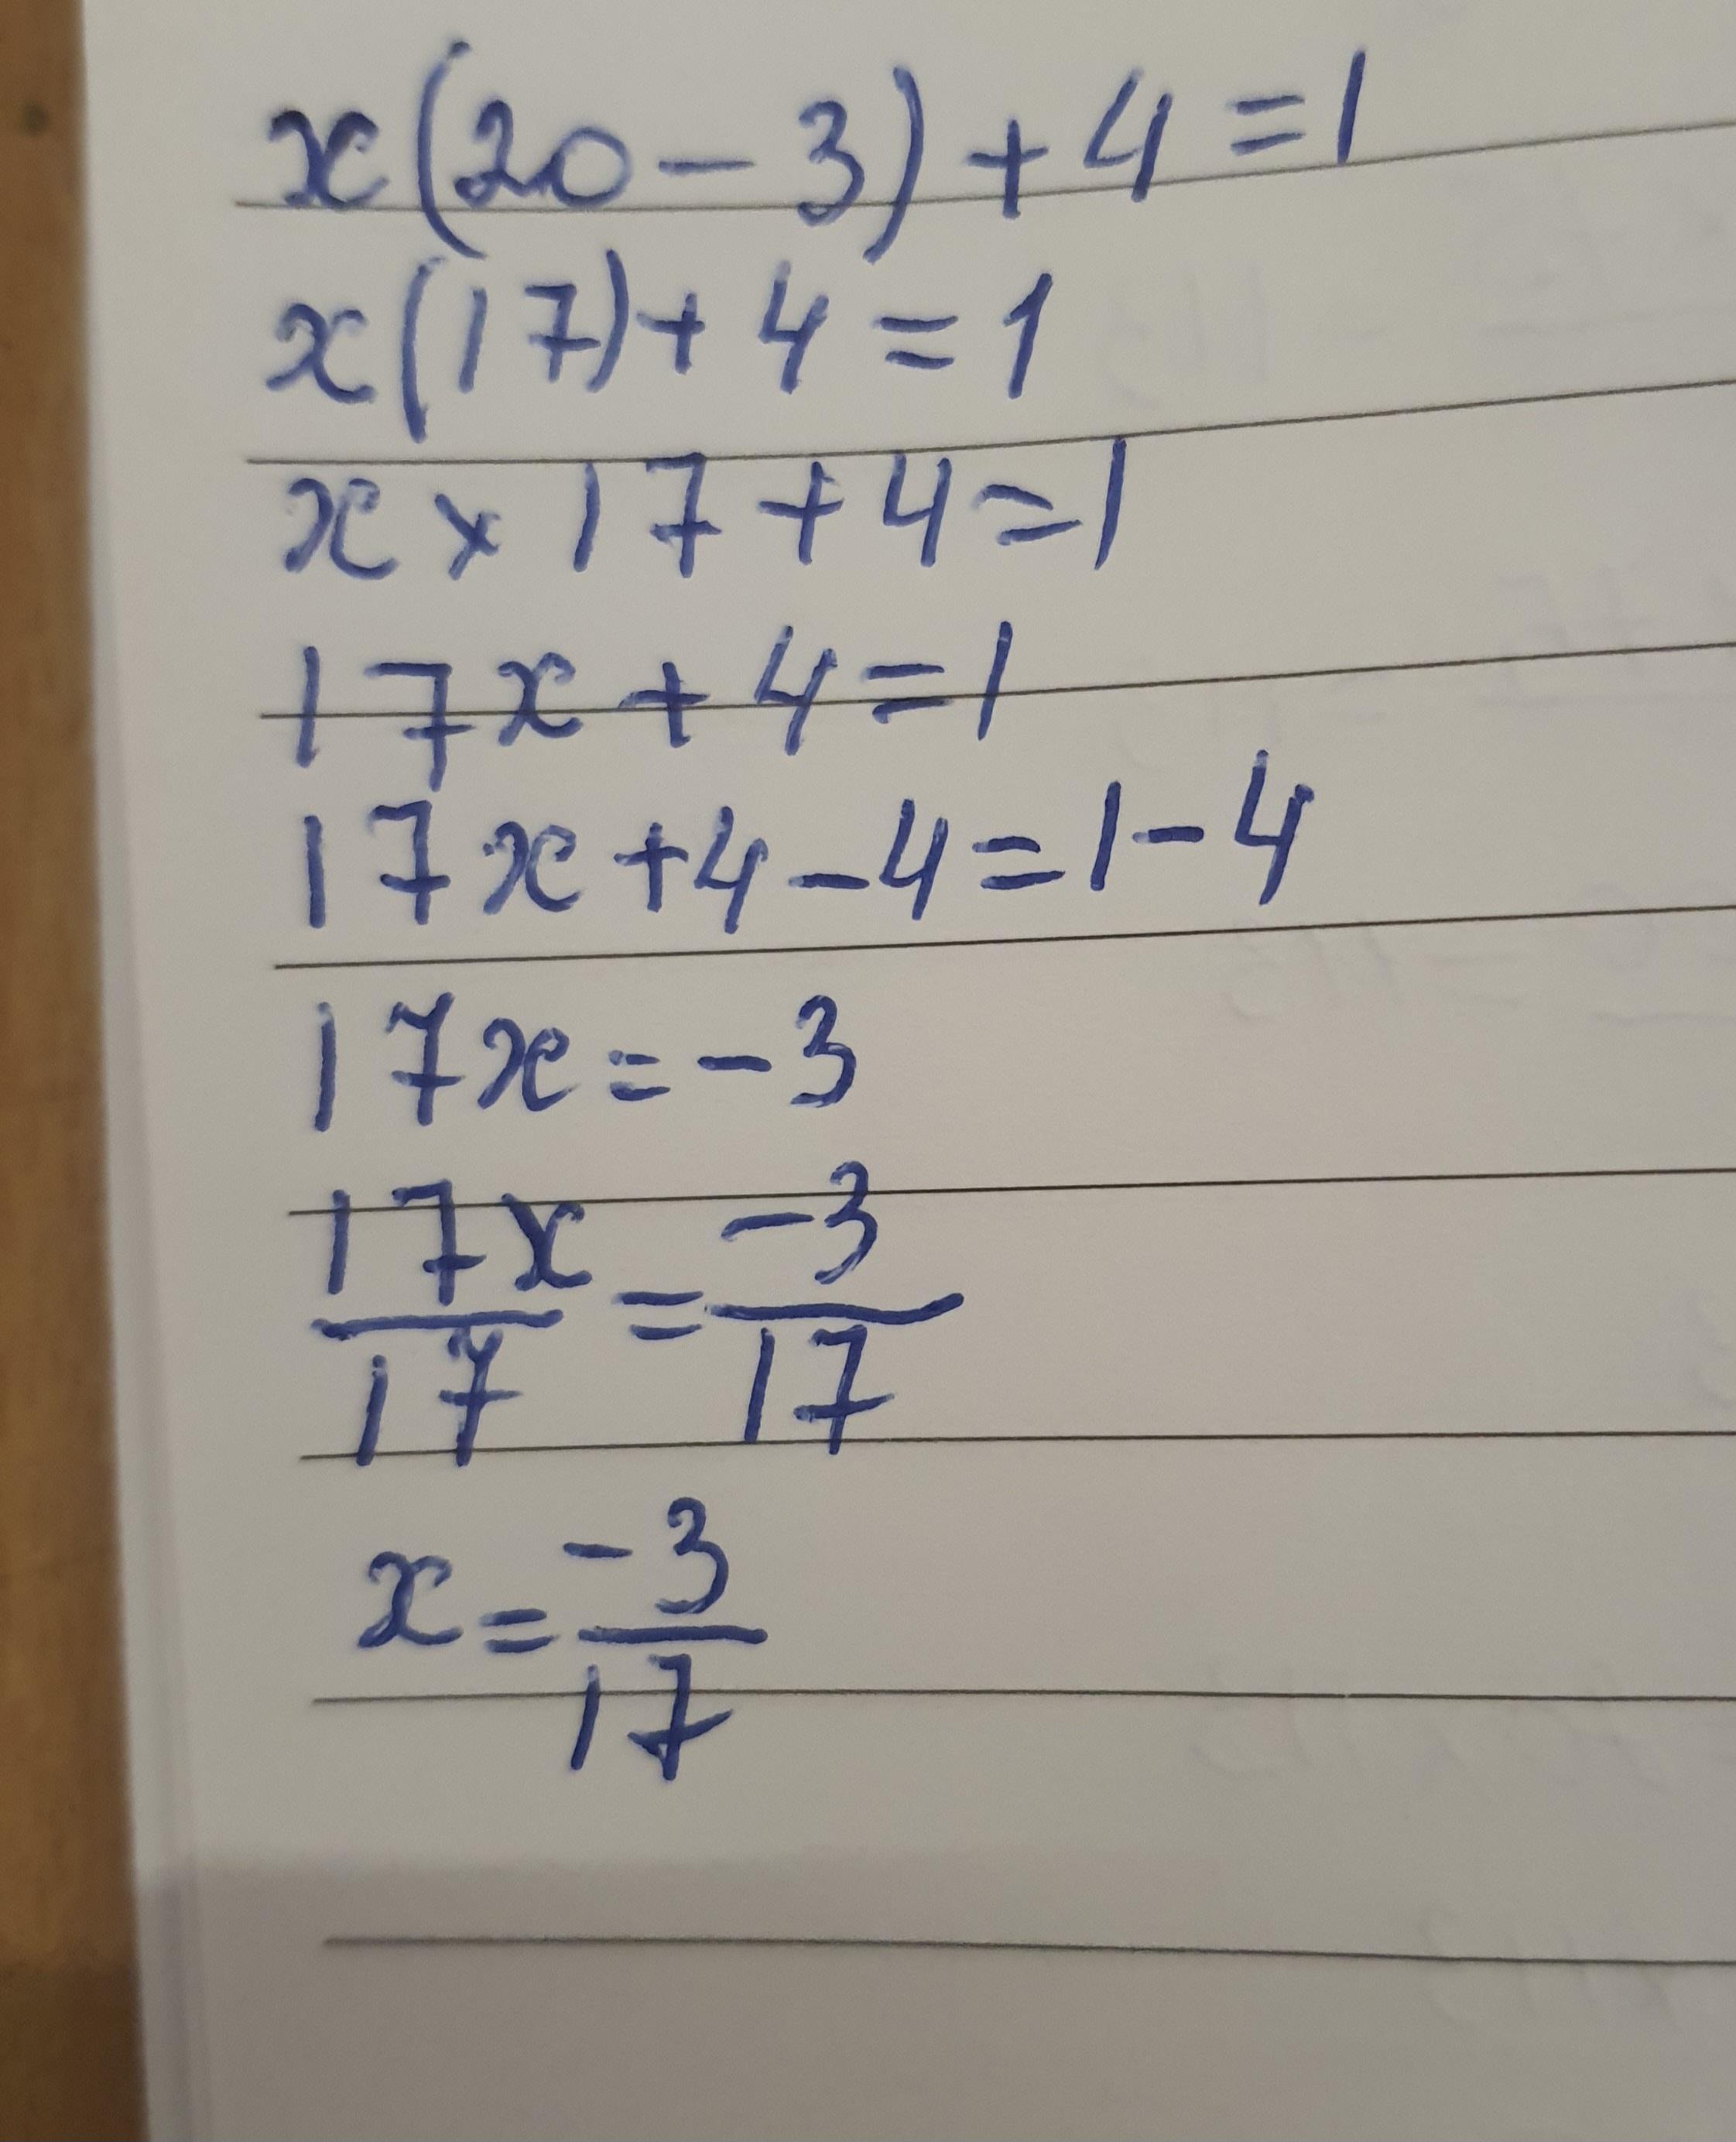 x(20-3)+4=1
x(17)+4=1
x×17+4=1
17x+4=1
17x+4-4=1-4
17x=-3
17x/17=-3/17
x=-3/17